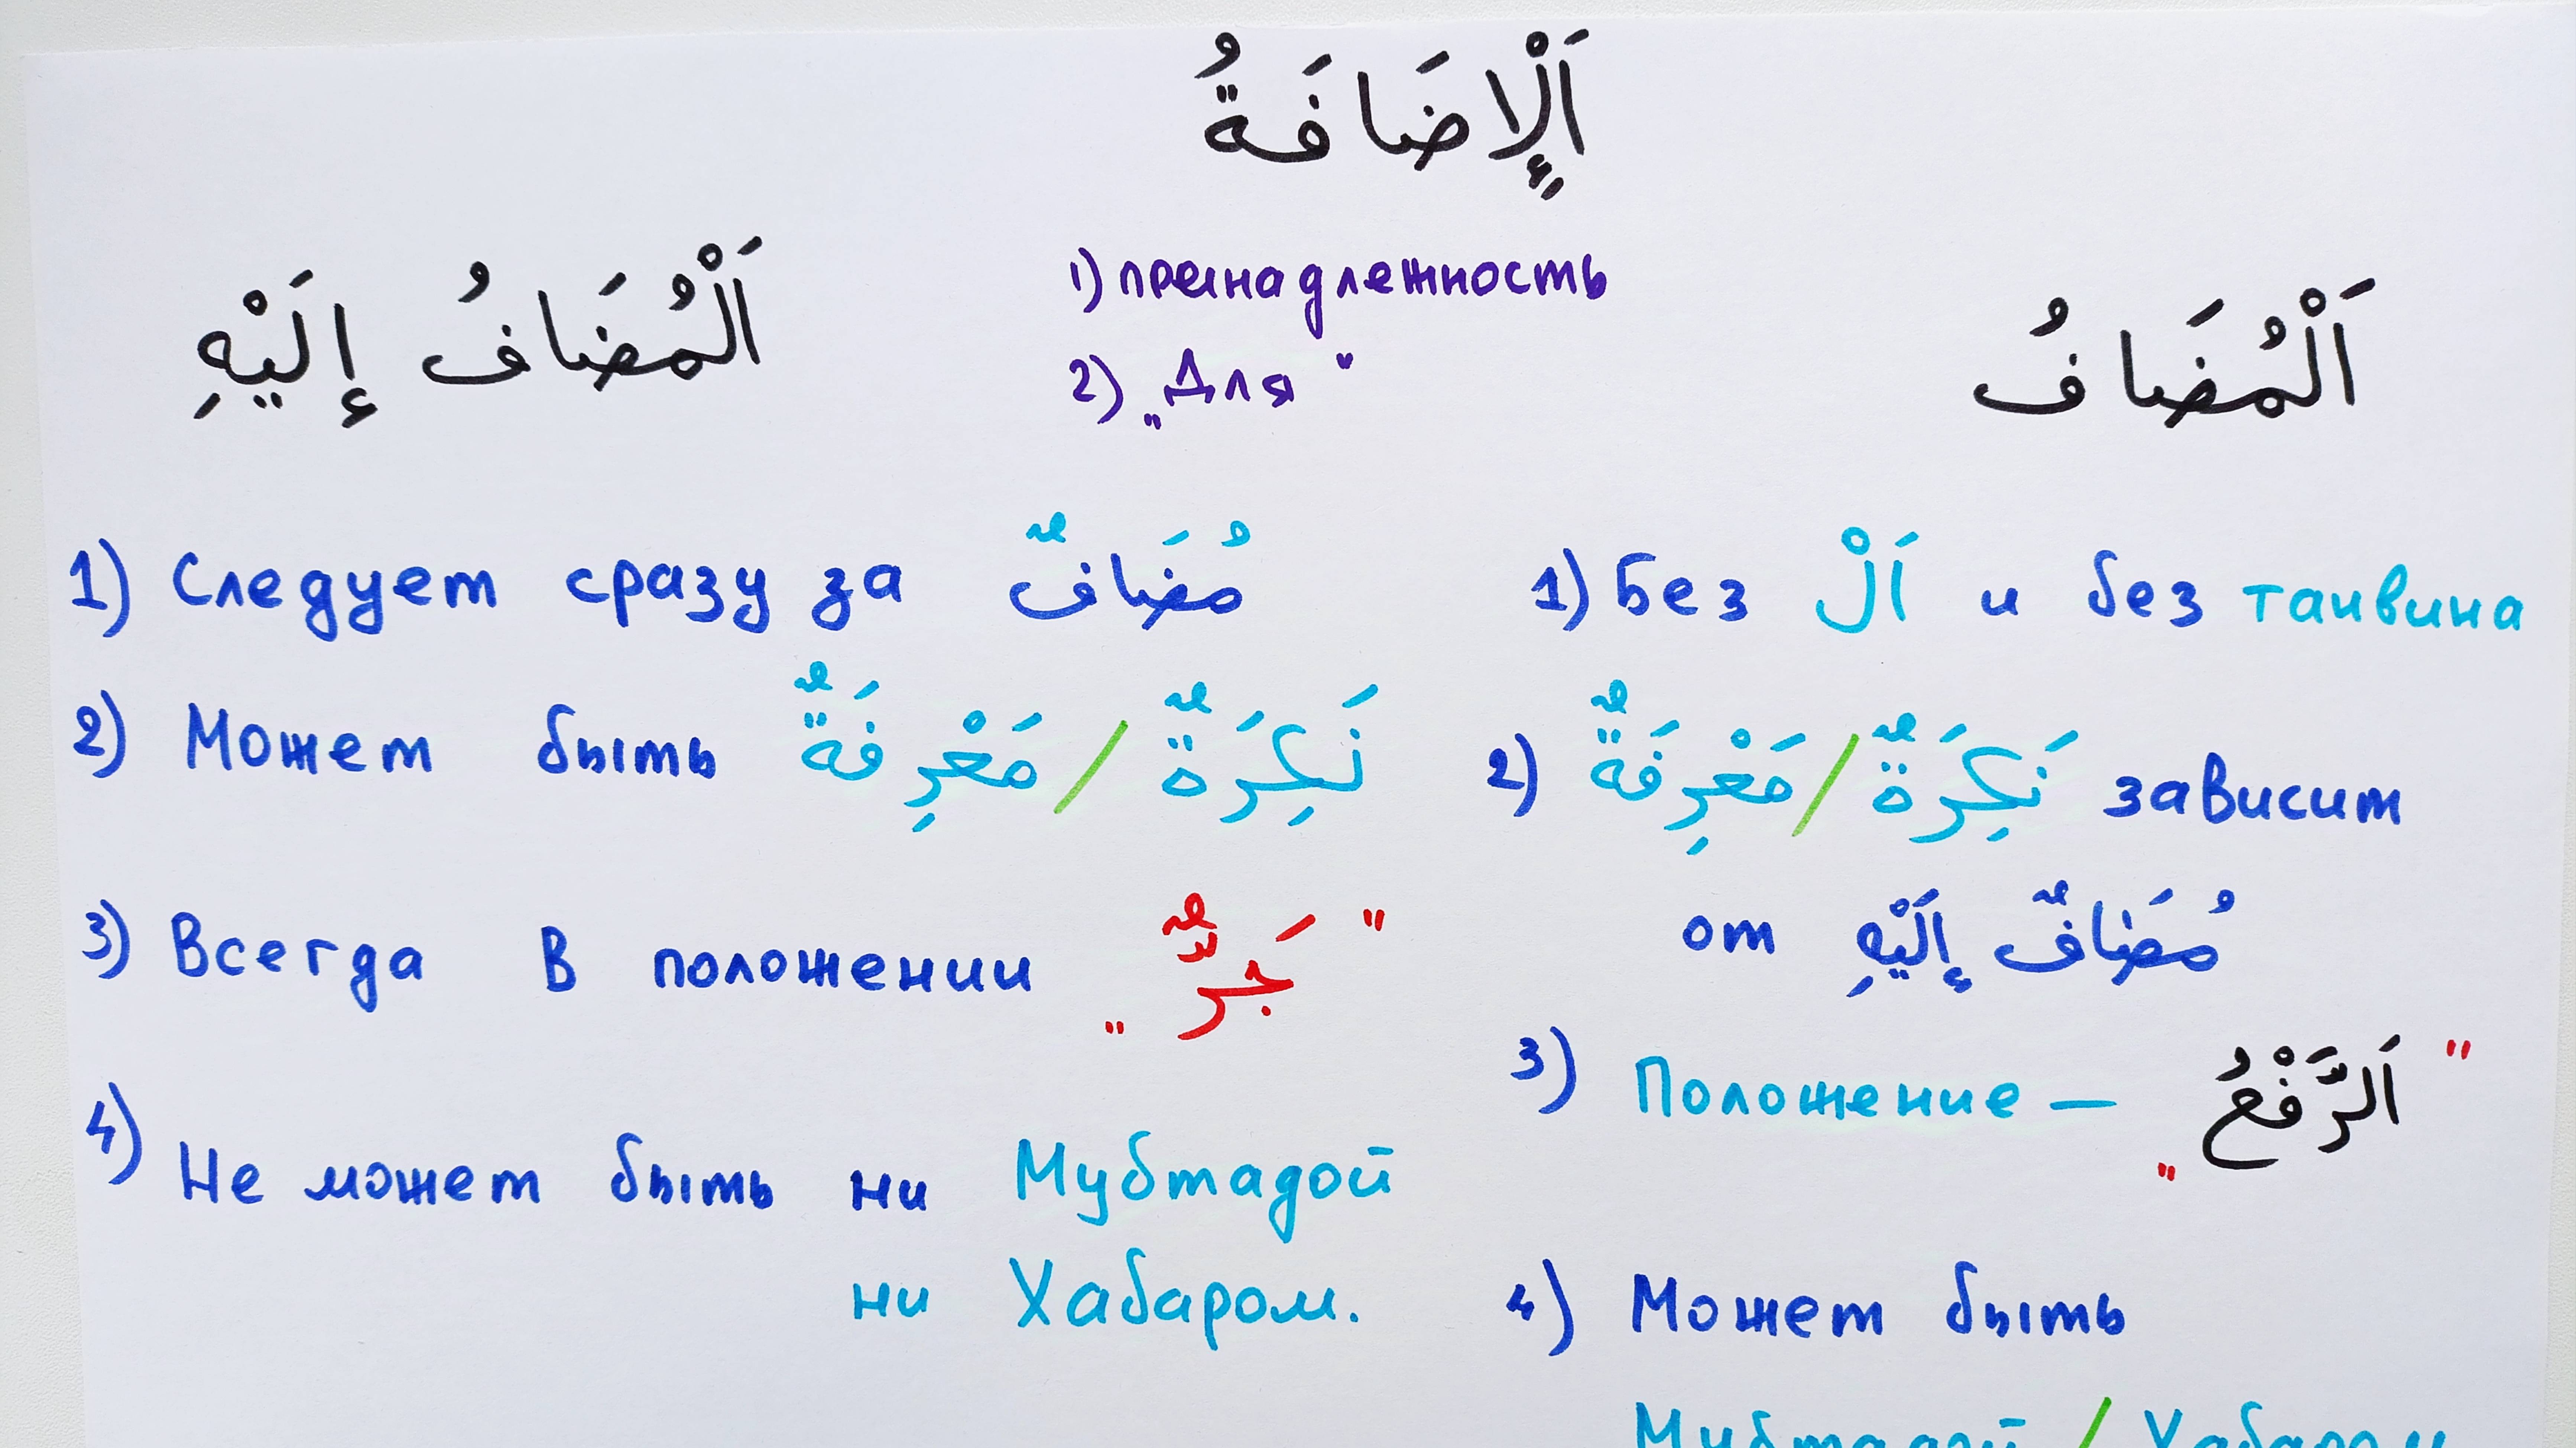 اَلْإِضَافَةُ
1) пренадлежность
2) „Для"
اَلْمُضَافُ
1) Без اَلْ и без танвина
2) نَكِرَةٌ / مَعْرِفَةٌ зависит
от مُضَافٌ إِلَيْهِ
3) Положение – "اَلرَّفْعُ"
4) Может быть
Мубтадой / Хабаром
اَلْمُضَافُ إِلَيْهِ
1) Следует сразу за مُضَافٌ
2) Может быть نَكِرَةٌ / مَعْرِفَةٌ
3) Всегда в положении "جَرٌّ"
4) Не может быть ни Мубтадой
ни Хабаром.